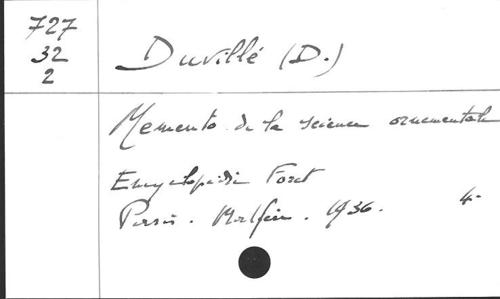 727
32
2
Duvillé (D.)
Memento de la science ornementale
Encyclopédie Foret
Paris. Malfère. 1936. 4-